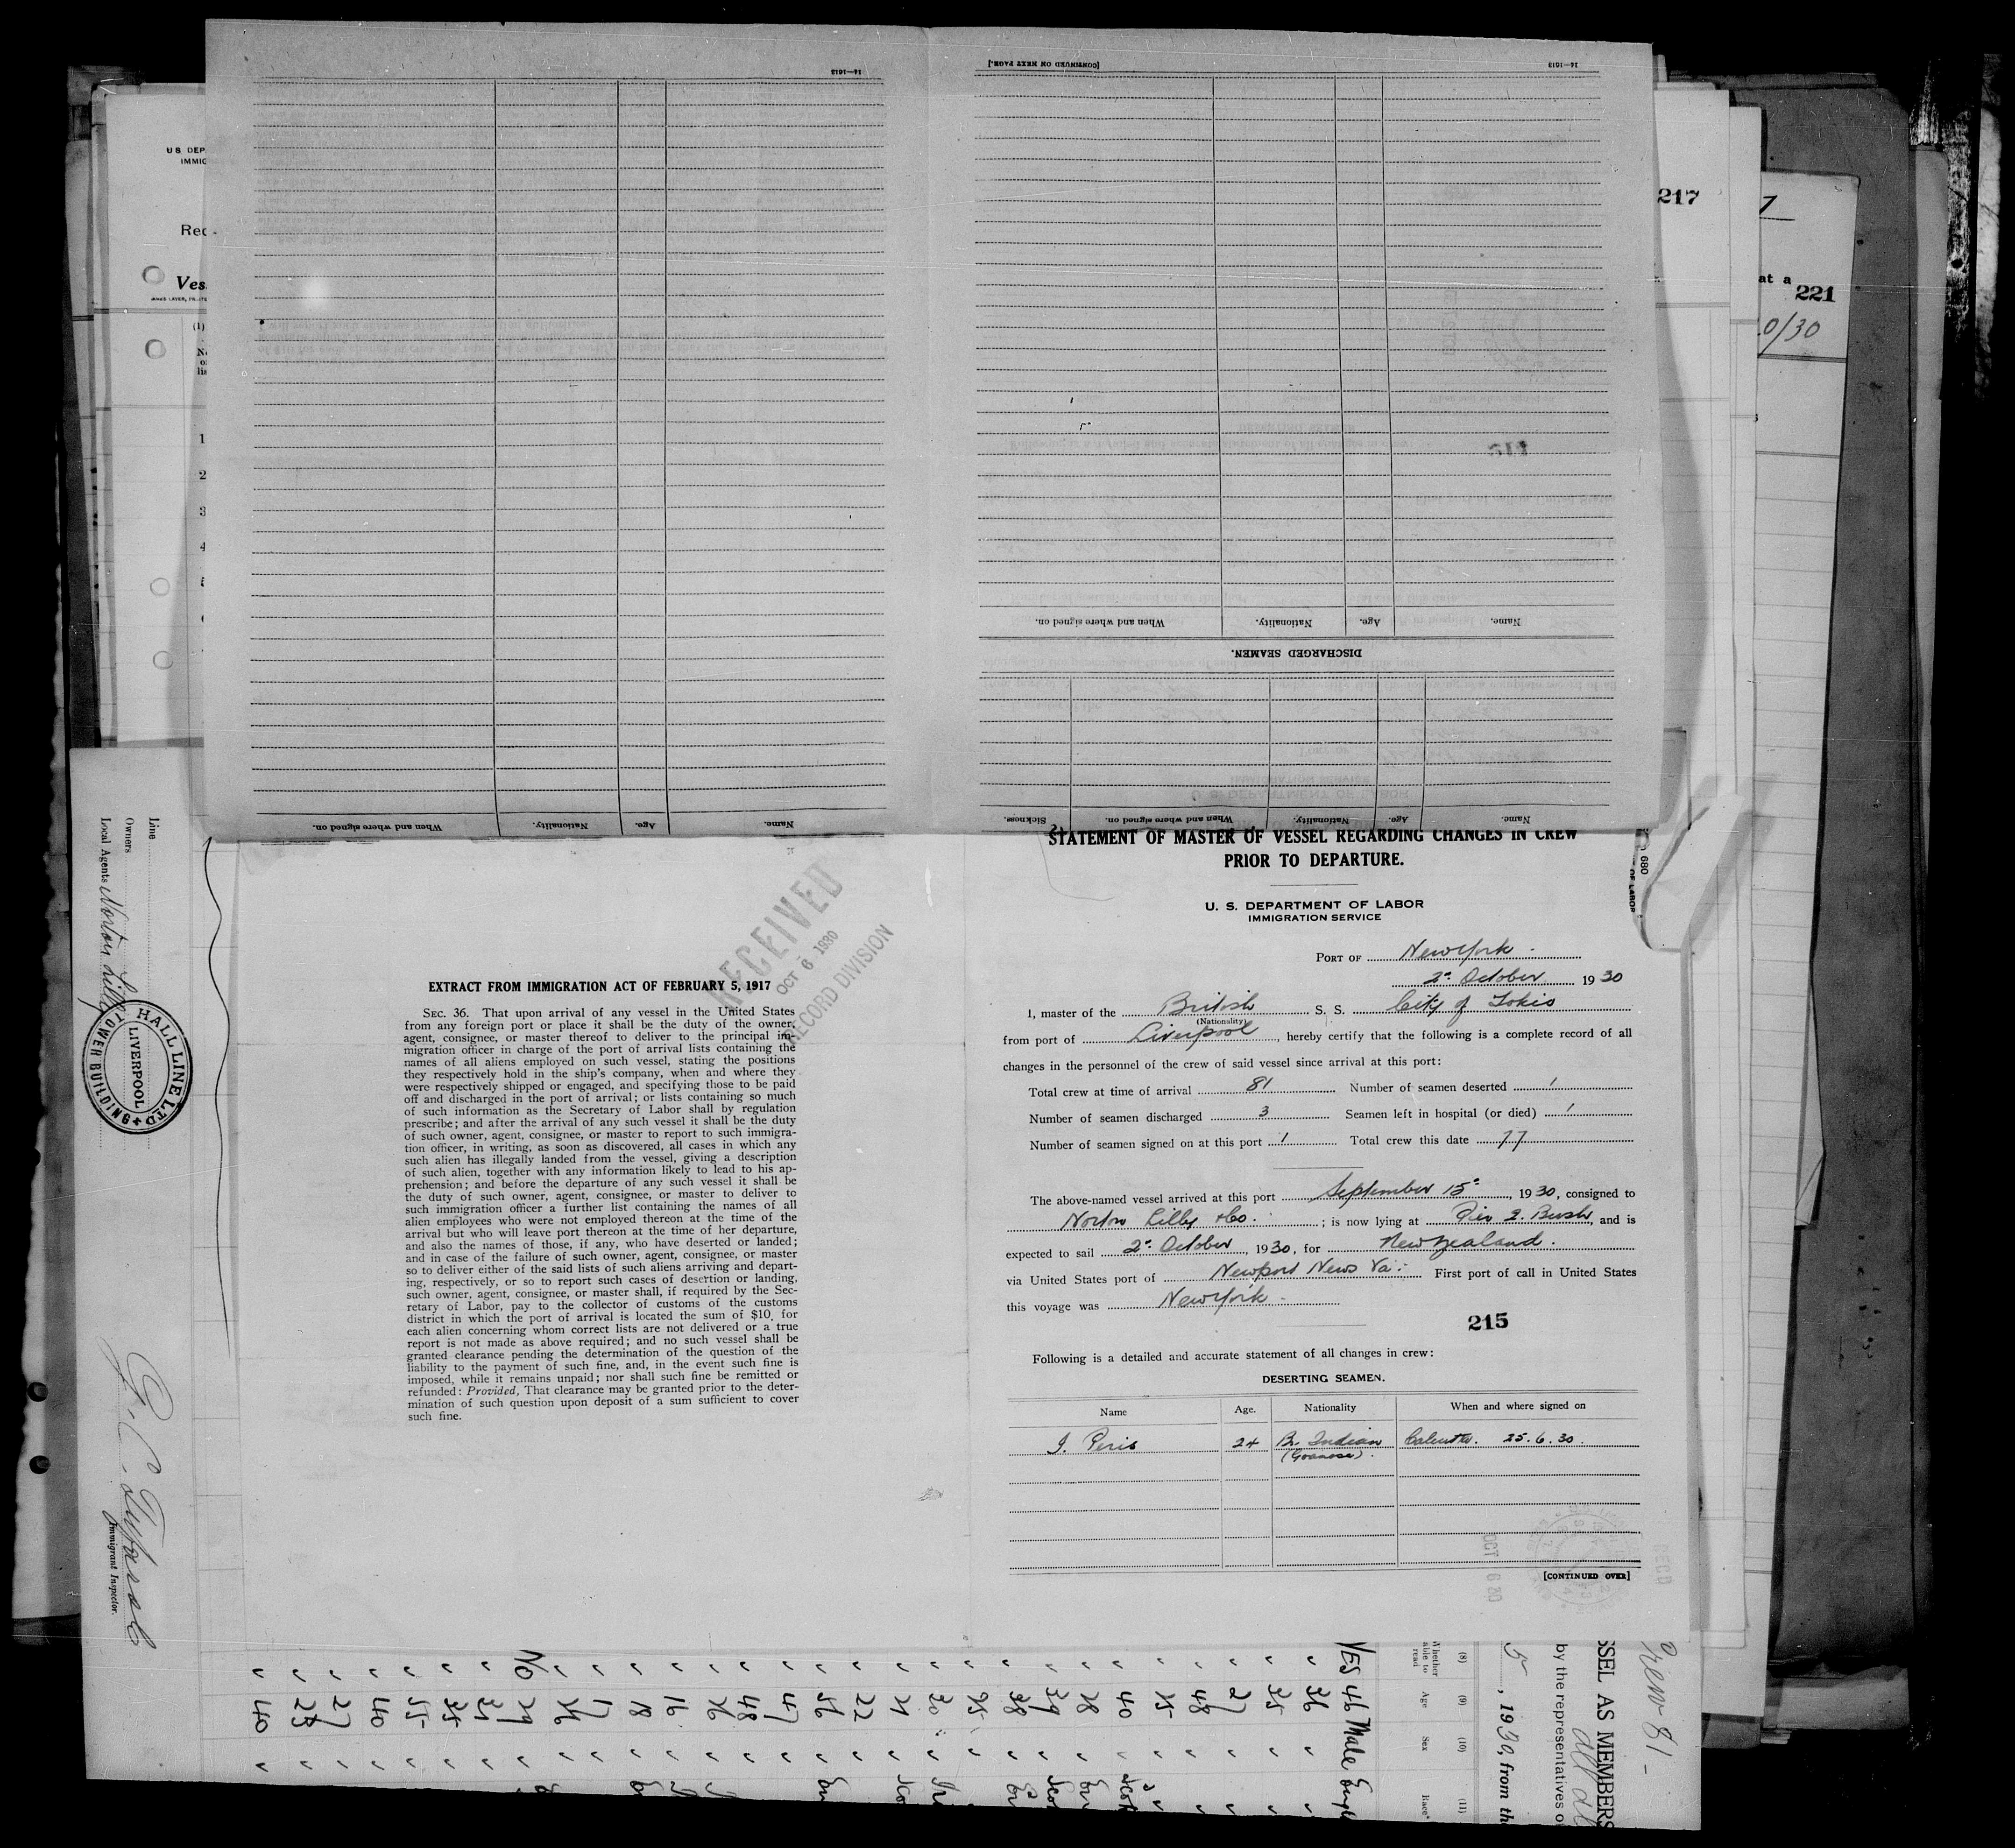 14—1613
[CONTINUED ON NEXT PAGE.]
14—1613
When and where signed on.
Nationality.
Age.
Name.
DISCHARGED SEAMEN.
Sickness.
When and where signed on.
Nationality.
Age.
Name.
When and where signed on.
Nationality.
Age.
Name.
U S DEP
IMMIG
Rec
Ves
(1)
1
2
3
4
217
at a
221
0/30
7
Line
Owners
Local Agents Norton Lilly
HALL LINE LTD
TOWER BUILDINGS
LIVERPOOL
Immigrant Inspector.
RECEIVED
OCT 6 1930
RECORD DIVISION
EXTRACT FROM IMMIGRATION ACT OF FEBRUARY 5, 1917
SEC. 36. That upon arrival of any vessel in the United States
from any foreign port or place it shall be the duty of the owner,
agent, consignee, or master thereof to deliver to the principal im-
migration officer in charge of the port of arrival lists containing the
names of all aliens employed on such vessel, stating the positions
they respectively hold in the ship's company, when and where they
were respectively shipped or engaged, and specifying those to be paid
off and discharged in the port of arrival; or lists containing so much
of such information as the Secretary of Labor shall by regulation
prescribe; and after the arrival of any such vessel it shall be the duty
of such owner, agent, consignee, or master to report to such immigra-
tion officer, in writing, as soon as discovered, all cases in which any
such alien has illegally landed from the vessel, giving a description
of such alien, together with any information likely to lead to his ap-
prehension; and before the departure of any such vessel it shall be
the duty of such owner, agent, consignee, or master to deliver to
such immigration officer a further list containing the names of all
alien employees who were not employed thereon at the time of the
arrival but who will leave port thereon at the time of her departure,
and also the names of those, if any, who have deserted or landed;
and in case of the failure of such owner, agent, consignee, or master
so to deliver either of the said lists of such aliens arriving and depart-
ing, respectively, or so to report such cases of desertion or landing,
such owner, agent, consignee, or master shall, if required by the Sec-
retary of Labor, pay to the collector of customs of the customs
district in which the port of arrival is located the sum of $10 for
each alien concerning whom correct lists are not delivered or a true
report is not made as above required; and no such vessel shall be
granted clearance pending the determination of the question of the
liability to the payment of such fine, and, in the event such fine is
imposed, while it remains unpaid; nor shall such fine be remitted or
refunded: Provided, That clearance may be granted prior to the deter-
mination of such question upon deposit of a sum sufficient to cover
such fine.
STATEMENT OF MASTER OF VESSEL REGARDING CHANGES IN CREW
PRIOR TO DEPARTURE.
U. S. DEPARTMENT OF LABOR
IMMIGRATION SERVICE
PORT OF New York
2d October 1930
I, master of the British S. S. City of Tokio
(Nationality)
from port of Liverpool, hereby certify that the following is a complete record of all
changes in the personnel of the crew of said vessel since arrival at this port:
Total crew at time of arrival 81 Number of seamen deserted 1
Number of seamen discharged 3 Seamen left in hospital (or died) 1
Number of seamen signed on at this port 1 Total crew this date 77
The above-named vessel arrived at this port September 15, 1930, consigned to
Norton Lilly & Co. ; is now lying at Pier 2. Bush, and is
expected to sail 2d October, 1930, for New Zealand.
via United States port of Newport News Va. First port of call in United States
this voyage was New York
215
Following is a detailed and accurate statement of all changes in crew:
DESERTING SEAMEN.
Name Age. Nationality When and where signed on
J. Peris 24 Br. Indian Calcutta. 25.6.30.
(Goanese).
[CONTINUED OVER]
OCT 6 30
680
OF LABOR
Crew 81
SSEL AS MEMBERS
by the representatives o
5, 1930, from th
(8) (9) (10) (11)
Whether able to read Age Sex Race
YES 46 Male Engl
36
35
27
48
35
40
28
39
38
25
30
21
22
56
47
48
26
16
18
17
26
No 29
31
35
55
40
27
23
40